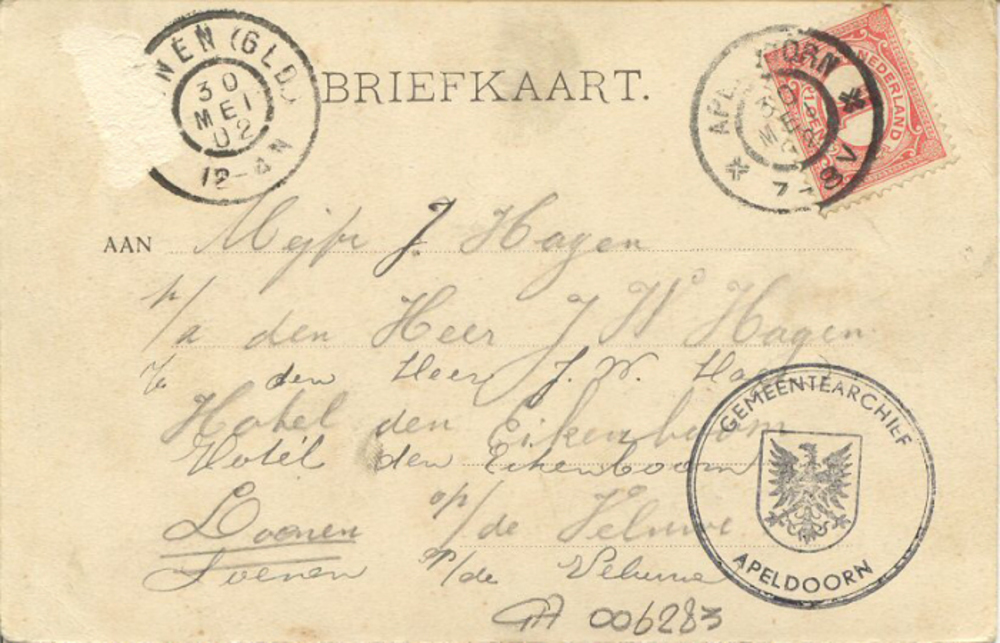 NEN (GLD.)
30
MEI
02
12-4N
BRIEFKAART.
APELDOORN
30
MEI
02
7-8V
NEDERLAND
1
AAN Mejfr J Hagen
p/a den Heer J W Hagen
den Heer J. W. Hagen
Hotel den Eikenboom
Hotel den Eikenboom
Loenen op/de Veluwe
Loenen op/de Veluwe
GEMEENTEARCHIEF
APELDOORN
GA 006283